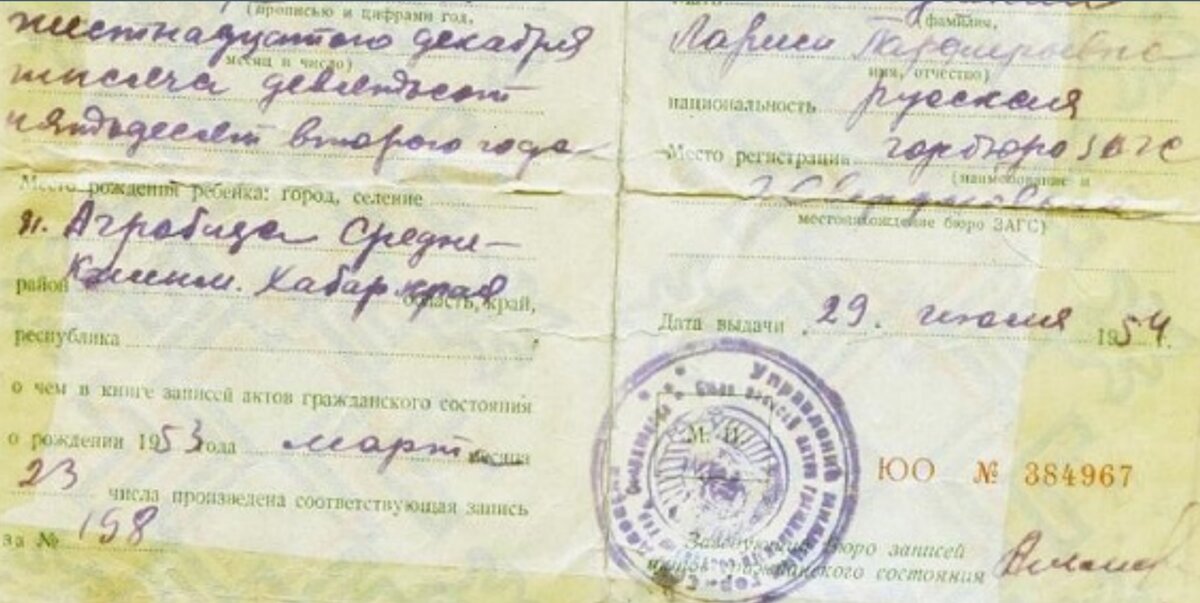 (прописью и цифрами год,
шестнадцатого декабря
месяц и число)
тысяча девятьсот
пятьдесят второго года
Место рождения ребенка: город, селение
п. Агробаза Средне-
район Канск. Хабар края область, край,
республика
о чем в книге записей актов гражданского состояния
о рождении 1953 года март месяца
23 числа произведена соответствующая запись
за № 198
Мать
(фамилия,
Лариса
имя, отчество)
национальность русская
Место регистрации горбюро ЗАГС
(наименование и
г.
местонахождение бюро ЗАГС)
Дата выдачи 29. июля 1954 г.
М. П.
ЮО № 384967
Заведующий бюро записей
актов гражданского состояния